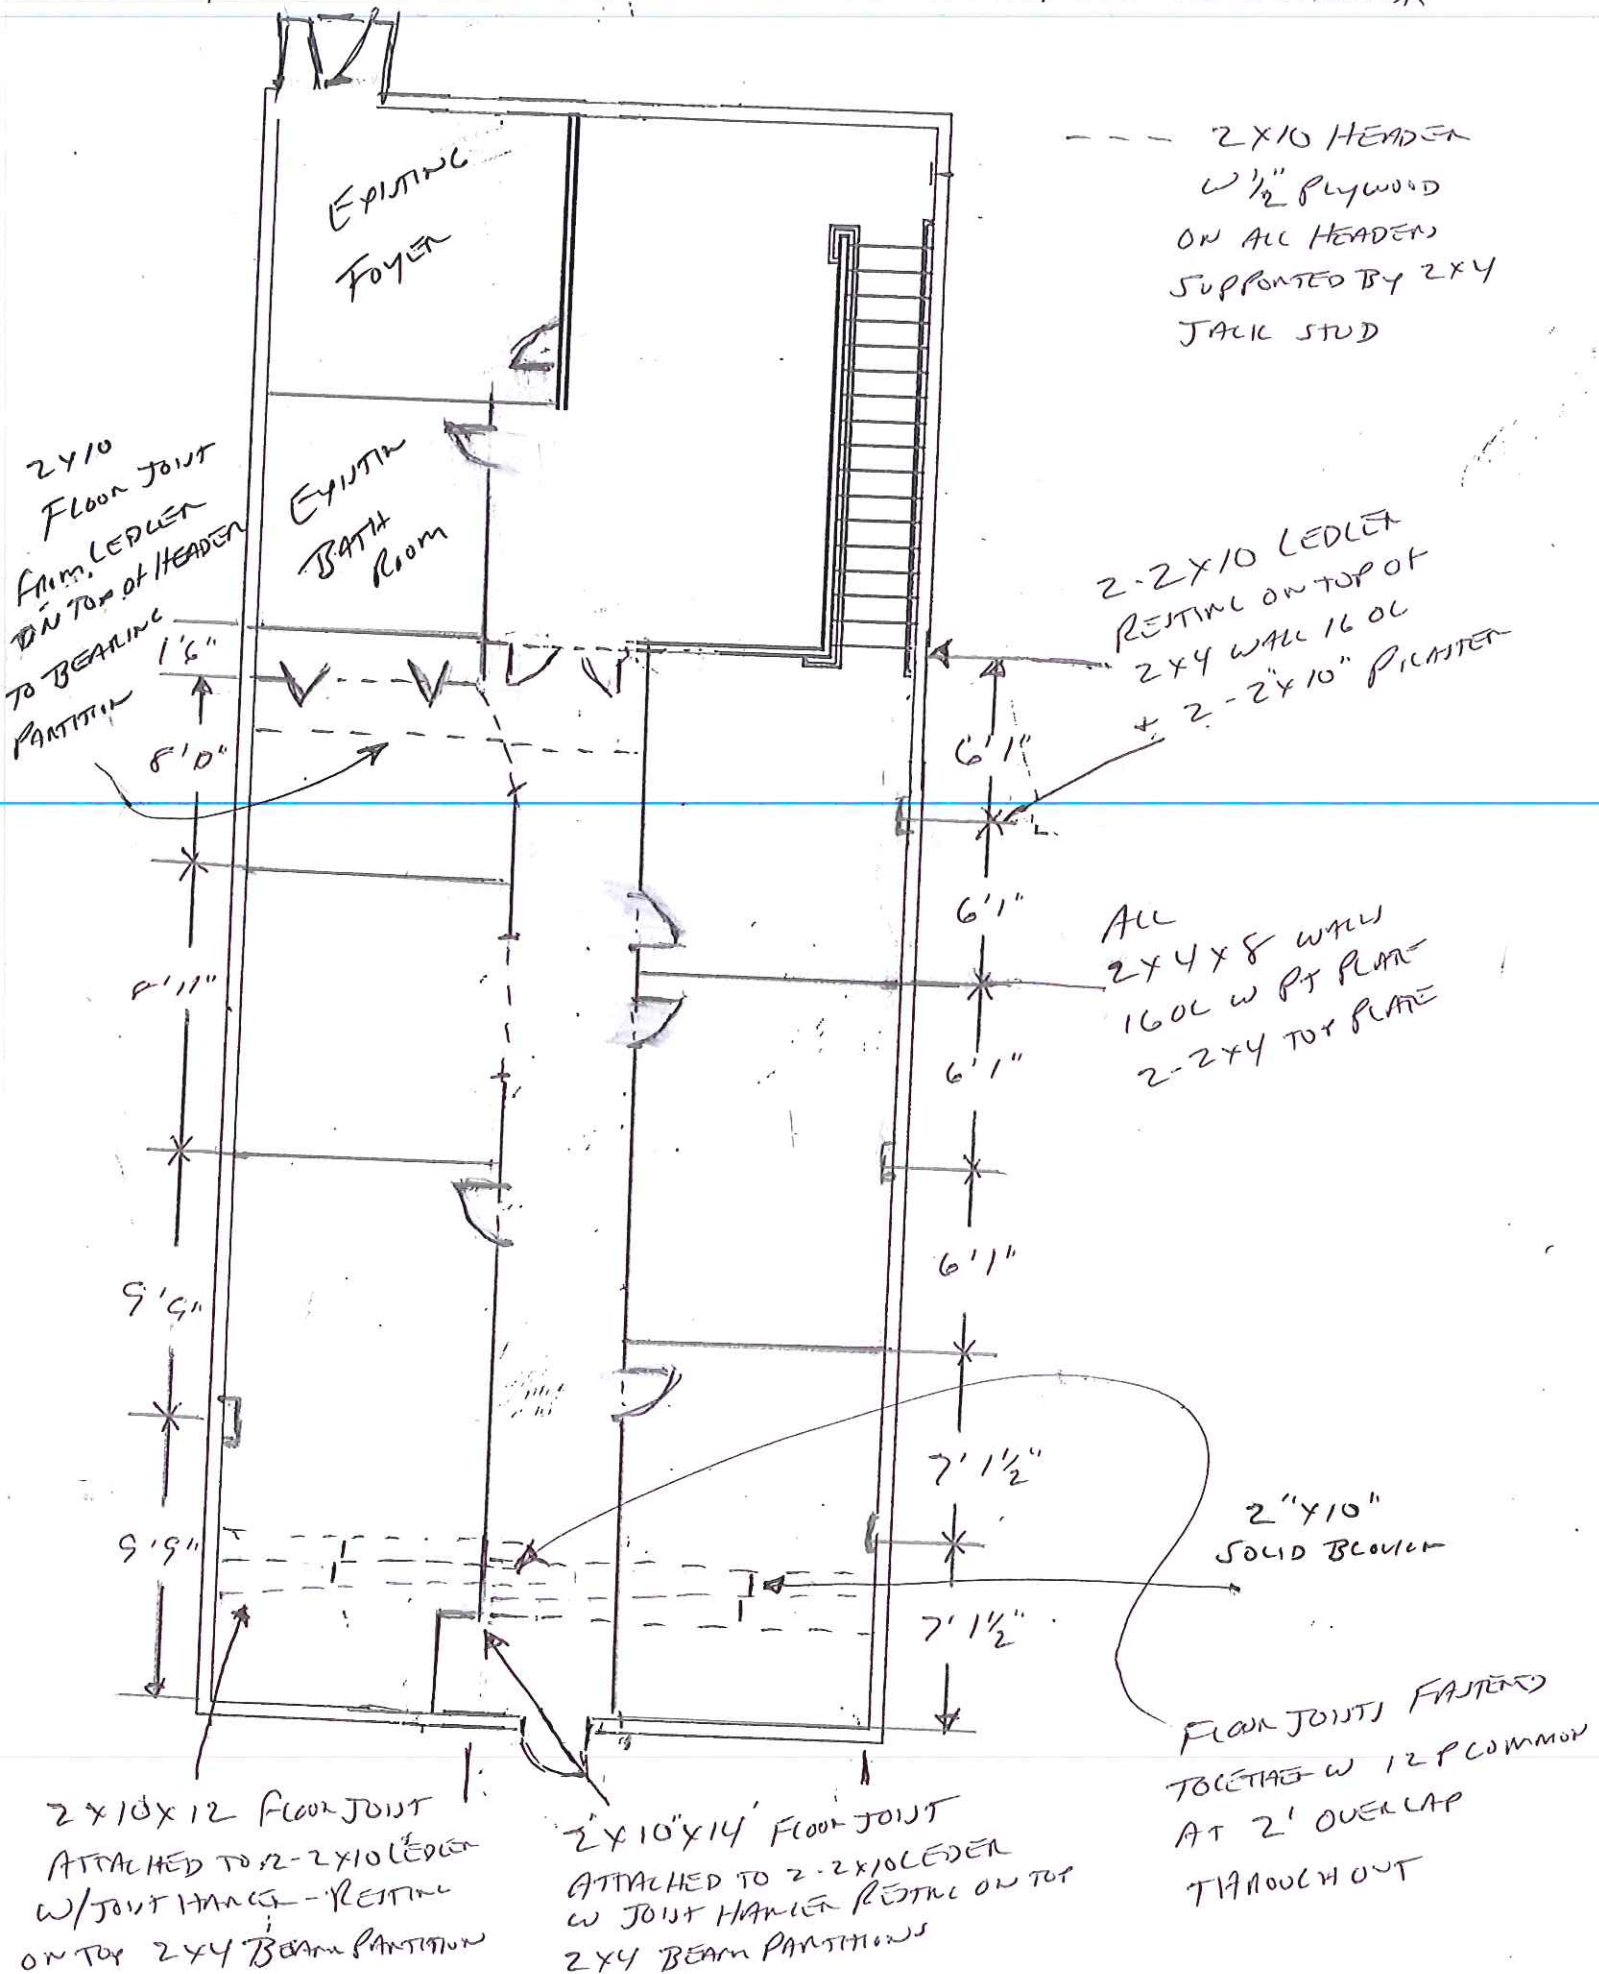 2X10 HEADER
W 1/2" PLYWOOD
ON ALL HEADERS
SUPPORTED BY 2X4
JACK STUD
EXISTING
FOYER
EXISTIN
BATH
ROOM
2X10
FLOOR JOIST
FROM LEDGER
ON TOP OF HEADER
TO BEARING
PARTITION
1'6"
8'0"
8'11"
9'9"
9'9"
2-2X10 LEDGER
RESTING ON TOP OF
2X4 WALL 16 OC
+ 2-2"X10" PILASTER
6'1"
6'1"
6'1"
6'1"
7'1 1/2"
7'1 1/2"
ALL
2X4X8 WALLS
16OC W PT PLATE
2-2X4 TOP PLATE
2"X10"
SOLID BLOCKING
FLOOR JOISTS FASTENED
TOGETHER W 12P COMMON
AT 2' OVERLAP
THROUGHOUT
2X10X12 FLOOR JOIST
ATTACHED TO 2-2X10 LEDGER
W/JOIST HANGER - RESTING
ON TOP 2X4 BEARN PARTITION
2"X10"X14' FLOOR JOIST
ATTACHED TO 2-2X10 LEDGER
W JOIST HANGER RESTING ON TOP
2X4 BEARN PARTITIONS